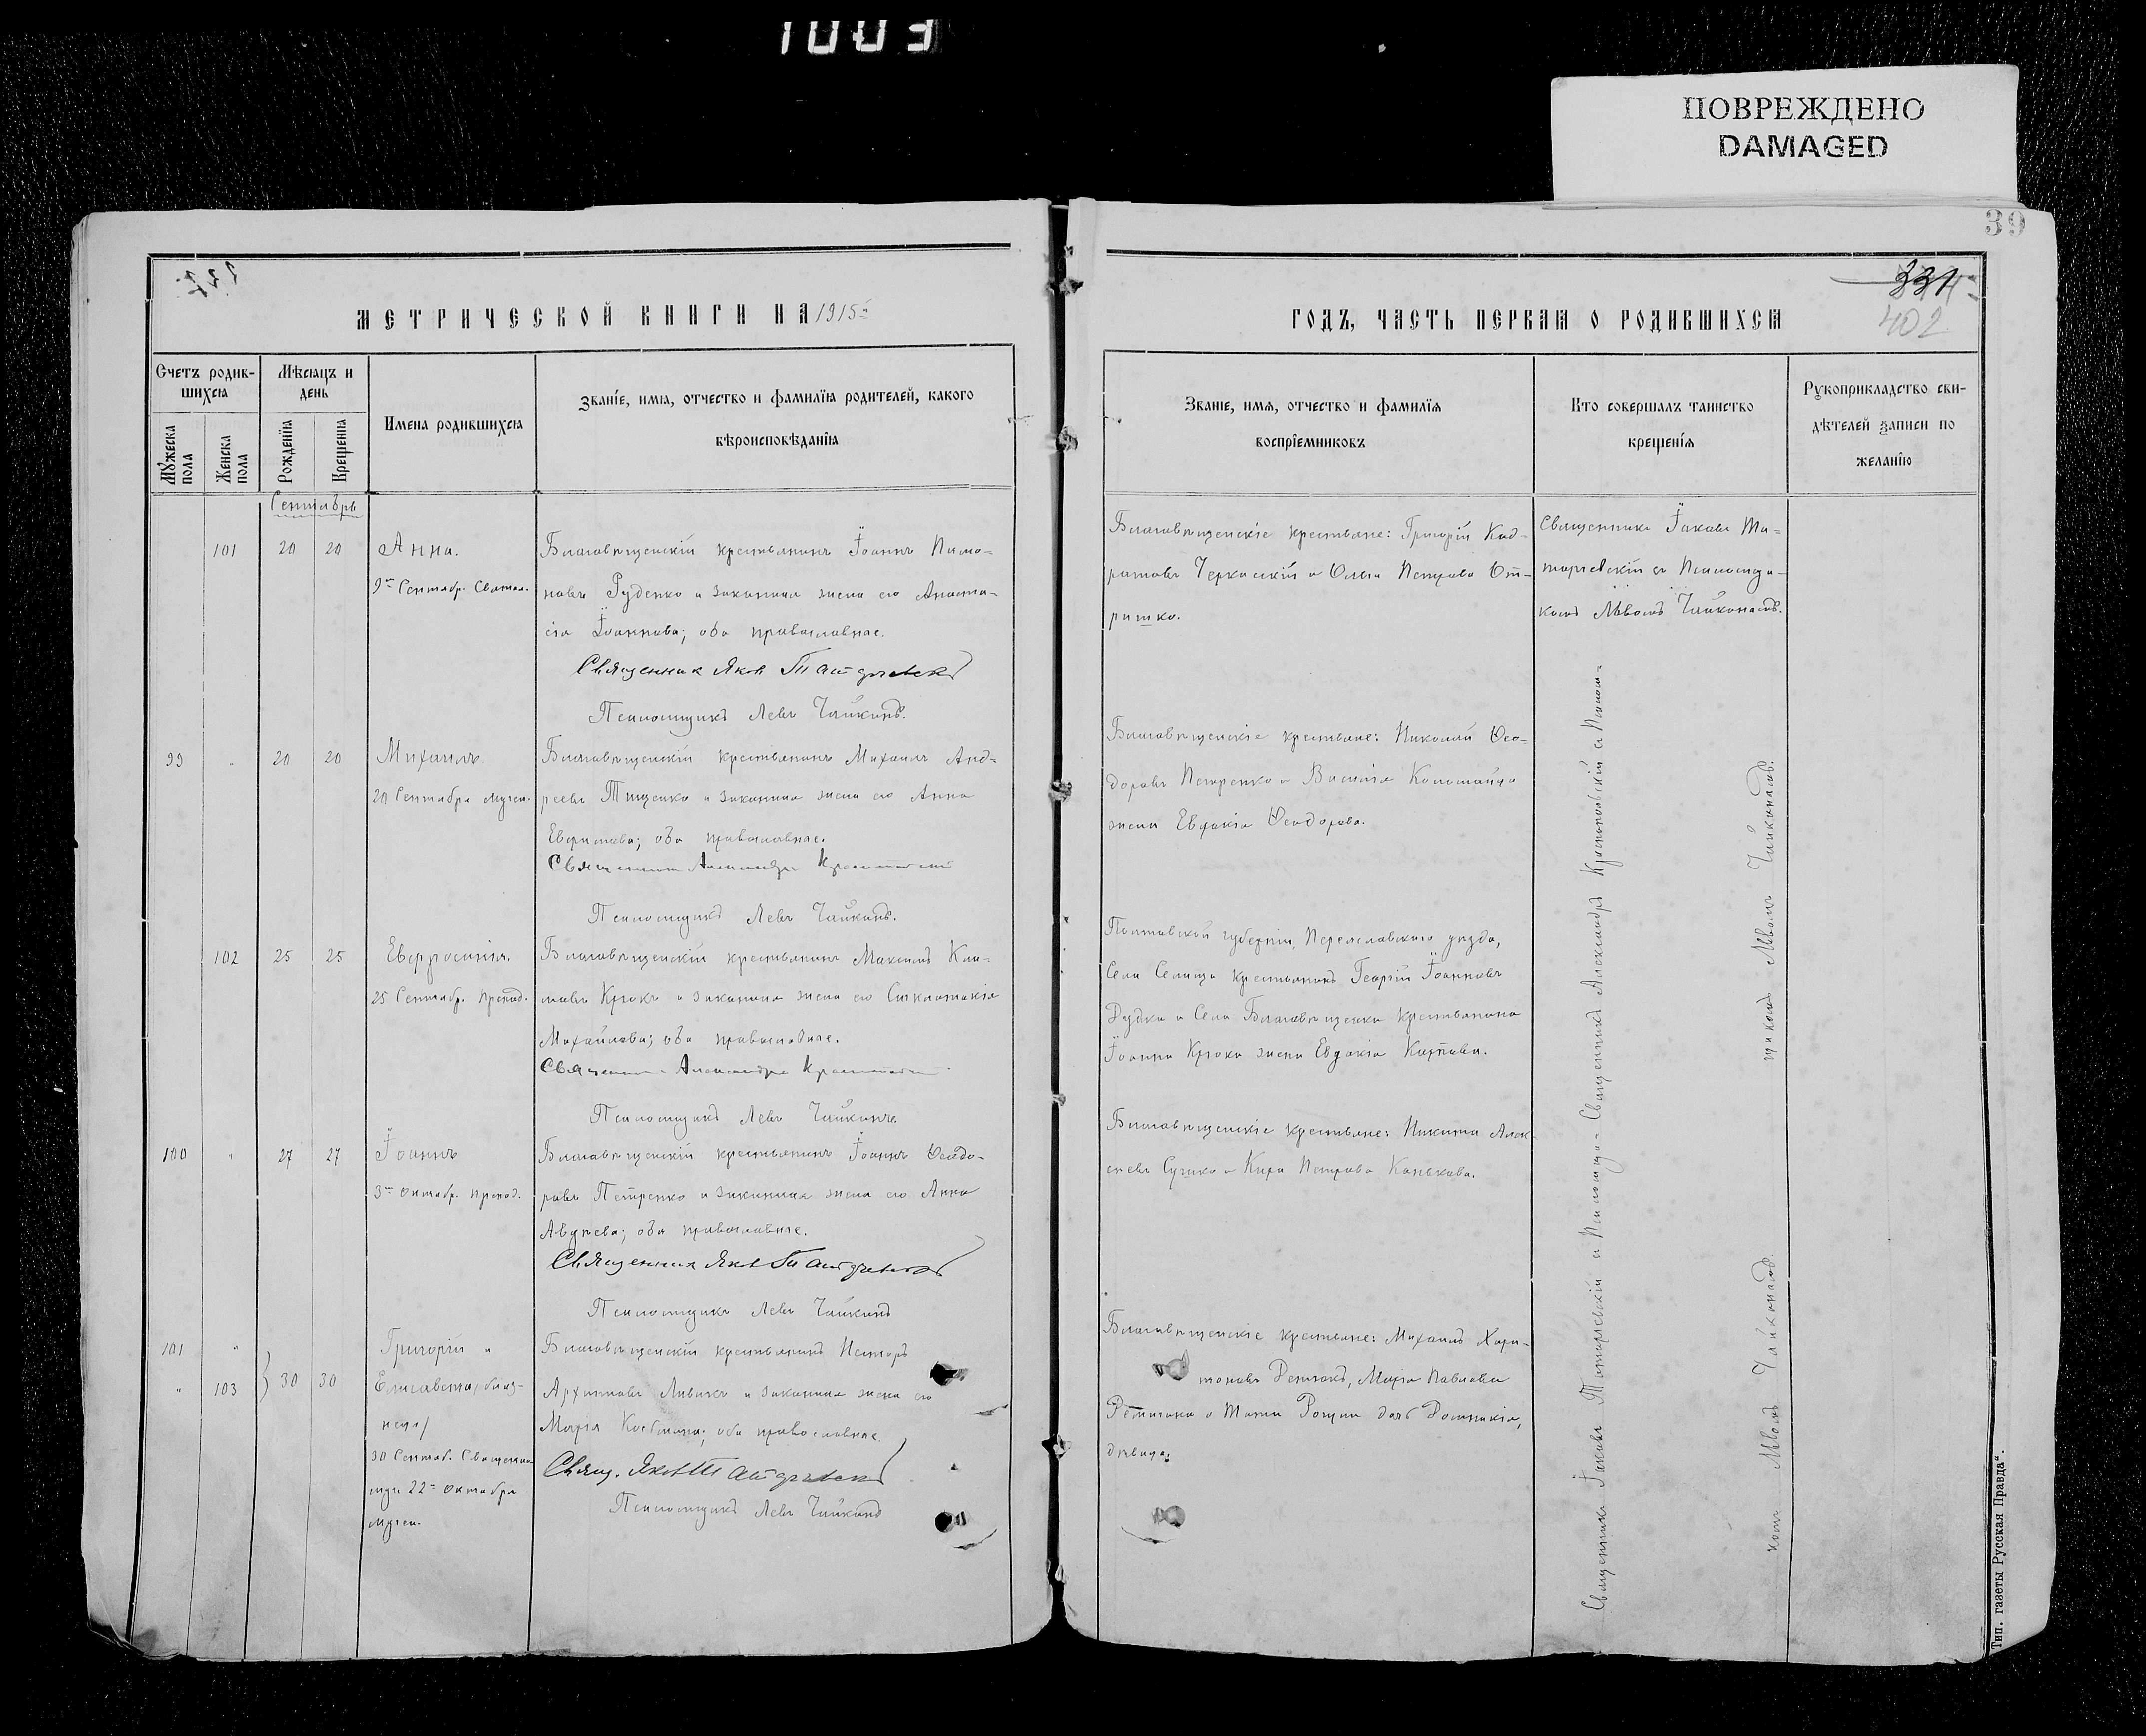 1003
ПОВРЕЖДЕНО
DAMAGED
39
331
402
МЕТРИЧЕСКОЙ КНИГИ НА 1915й
Счетъ родив-
шихся
Мѣсяцъ и
день
Имена родившихся
Званіе, имя, отчество и фамилія родителей, какого
вѣроисповѣданія
Мужеска
пола
Женска
пола
Рожденія
Крещенія
Сентябрь
101 20 20 Анна.
9го Сентябр.
Благовѣщенскій крестьянинъ Іоаннъ Пимо-
новъ Руденко и законная жена его Анаста-
сія Іоаннова; оба православные.
Священник Яков
Псаломщикъ Левъ Чайкинъ.
99 " 20 20 Михаилъ.
20 Сентября мучен.
Благовѣщенскій крестьянинъ Михаилъ Анд-
реевъ Тищенко и законная жена его Анна
оба православные.
Священник Александръ
Псаломщикъ Левъ Чайкинъ.
102 25 25 Евфросинія.
25 Сентябр. препод.
Благовѣщенскій крестьянинъ Максимъ Кли-
мовъ Крюкъ и законная жена его Синклитикія
Михайлова; оба православные.
Александръ
Псаломщикъ Левъ Чайкинъ.
100 " 27 27 Іоаннъ
3го Октябр. препод.
Благовѣщенскій крестьянинъ Іоаннъ Ѳеодо-
ровъ Петренко и законная жена его Анна
Авдѣева; оба православные.
Священник Яков
Псаломщикъ Левъ Чайкинъ
101 " Григорій и
" 103 } 30 30 Елисавета /близ-
нецы/
30 Сентяб.
22го Октября
мучен.
Благовѣщенскій крестьянинъ Несторъ
и законная жена его
Марія оба православные.
Свящ. Яков
Псаломщикъ Левъ Чайкинъ
ГОДЪ, ЧАСТЬ ПЕРВАЯ О РОДИВШИХСЯ
Званіе, имя, отчество и фамилія
воспріемниковъ
Кто совершалъ таинство
крещенія
Рукоприкладство сви-
дѣтелей записи по
желанію
Благовѣщенскіе крестьяне: Григорій Код-
ратовъ Черкасскій и Ольга Петрова От-
ришко.
Священникъ Іаковъ Та-
съ Псаломщи-
комъ Львомъ Чайкинымъ.
Благовѣщенскіе крестьяне: Николай Ѳео-
доровъ Петренко и Василія Коломайца
жена Евдокія Ѳеодорова.
Полтавской губерніи, Переяславскаго уѣзда,
Села Селища крестьянинъ Георгій Іоанновъ
Дудка и Села Благовѣщенки крестьянина
Іоанна Крюка жена Евдокія Карпова.
Благовѣщенскіе крестьяне: Никита Алек-
сѣевъ Сушко и Кира Петрова Конькова.
Благовѣщенскіе крестьяне: Михаилъ Хари-
тоновъ Марія Павлова
дочь Домникія,
дѣвица.
Священникъ Іаковъ съ Псаломщи-
комъ Львомъ Чайкинымъ.
Священникъ Александръ съ Псалом-
щикомъ Львомъ Чайкинымъ.
Тип. газеты „Русская Правда“.